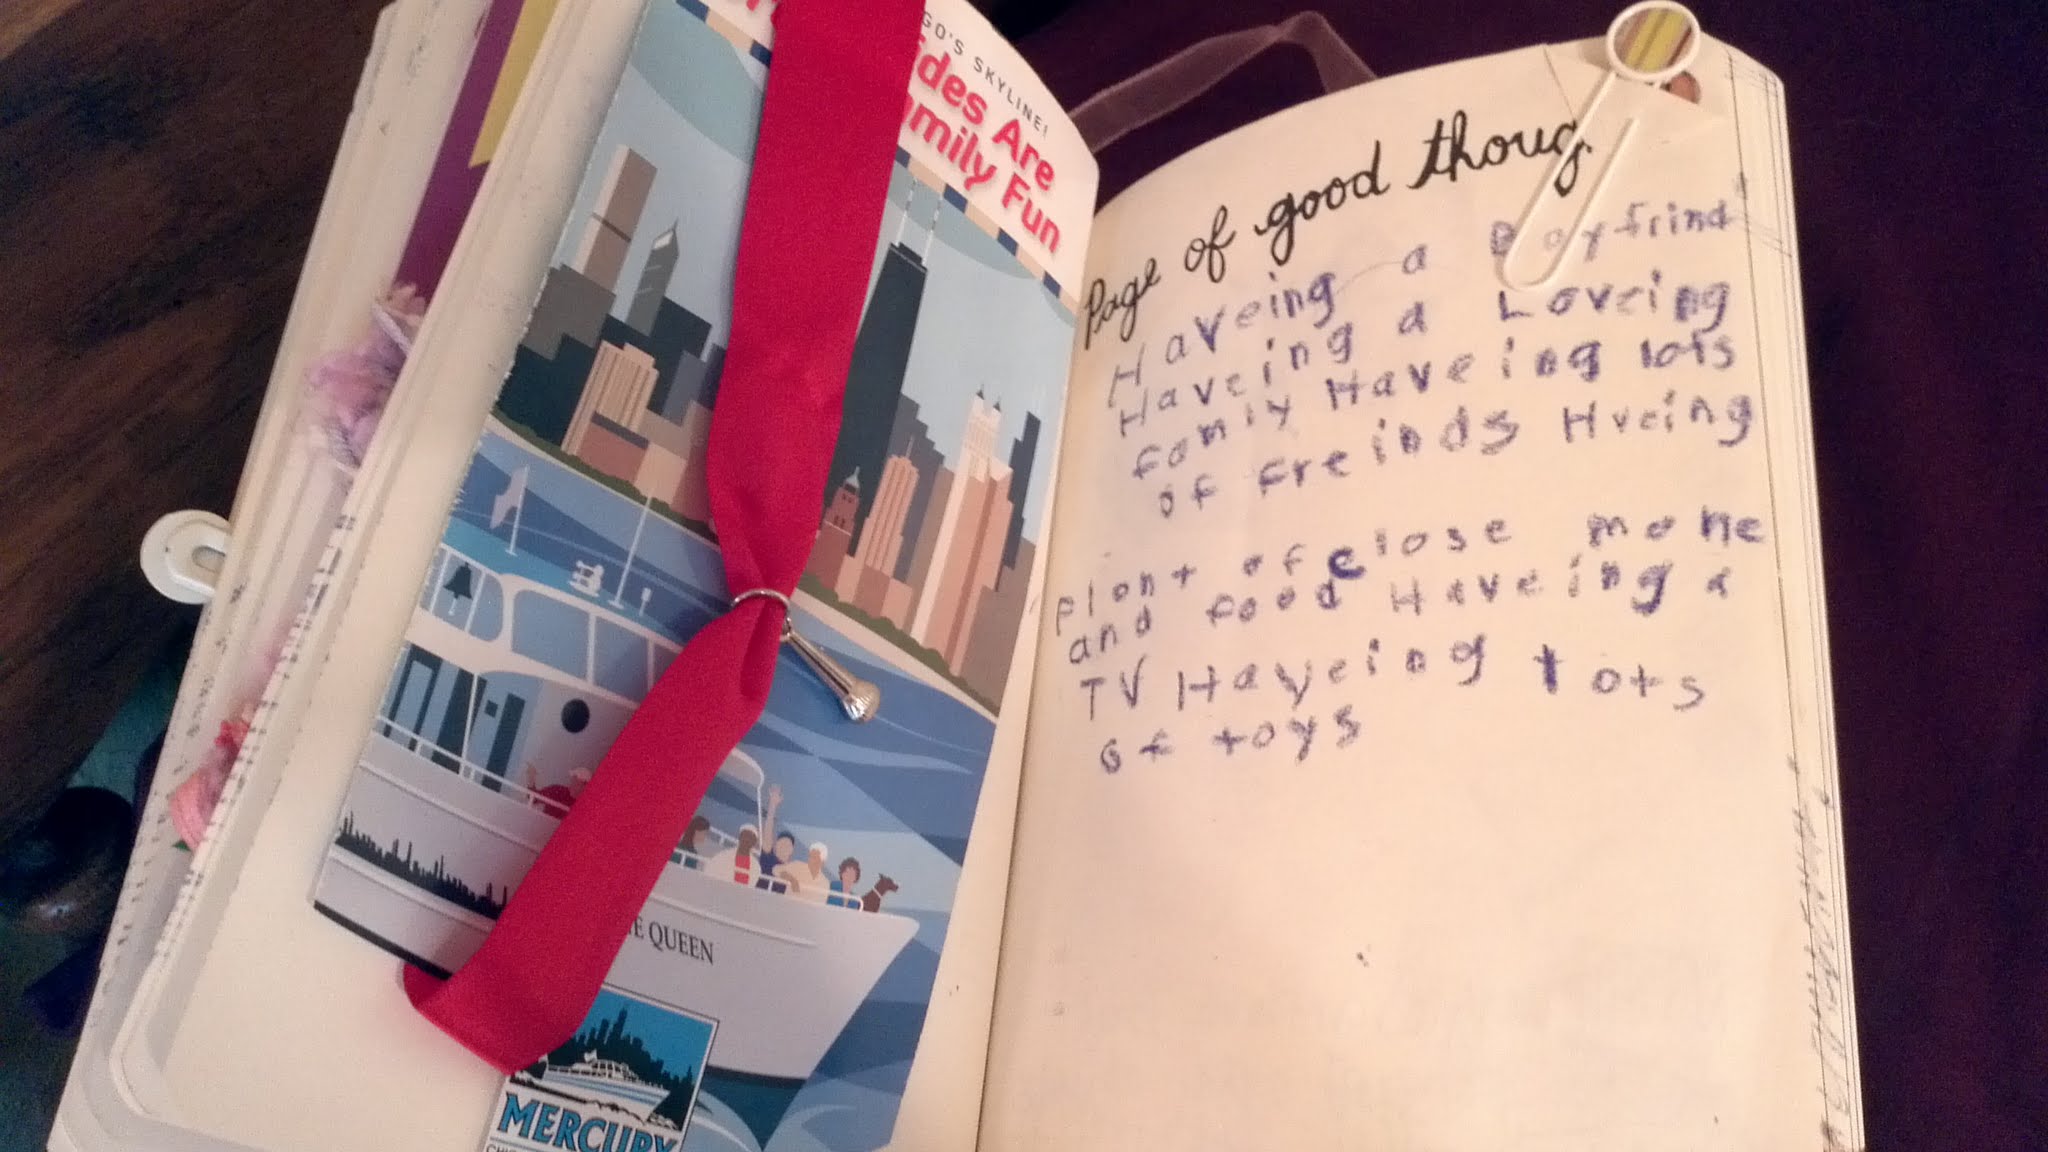 GO'S SKYLINE!
des Are
mily Fun
E QUEEN
MERCURY
Page of good thoug
Haveing a Boyfrind
Haveing a Loveing
family Haveing lots
of freinds Hveing
plont of close mone
and food Haveing a
TV Haveing lots
of toys